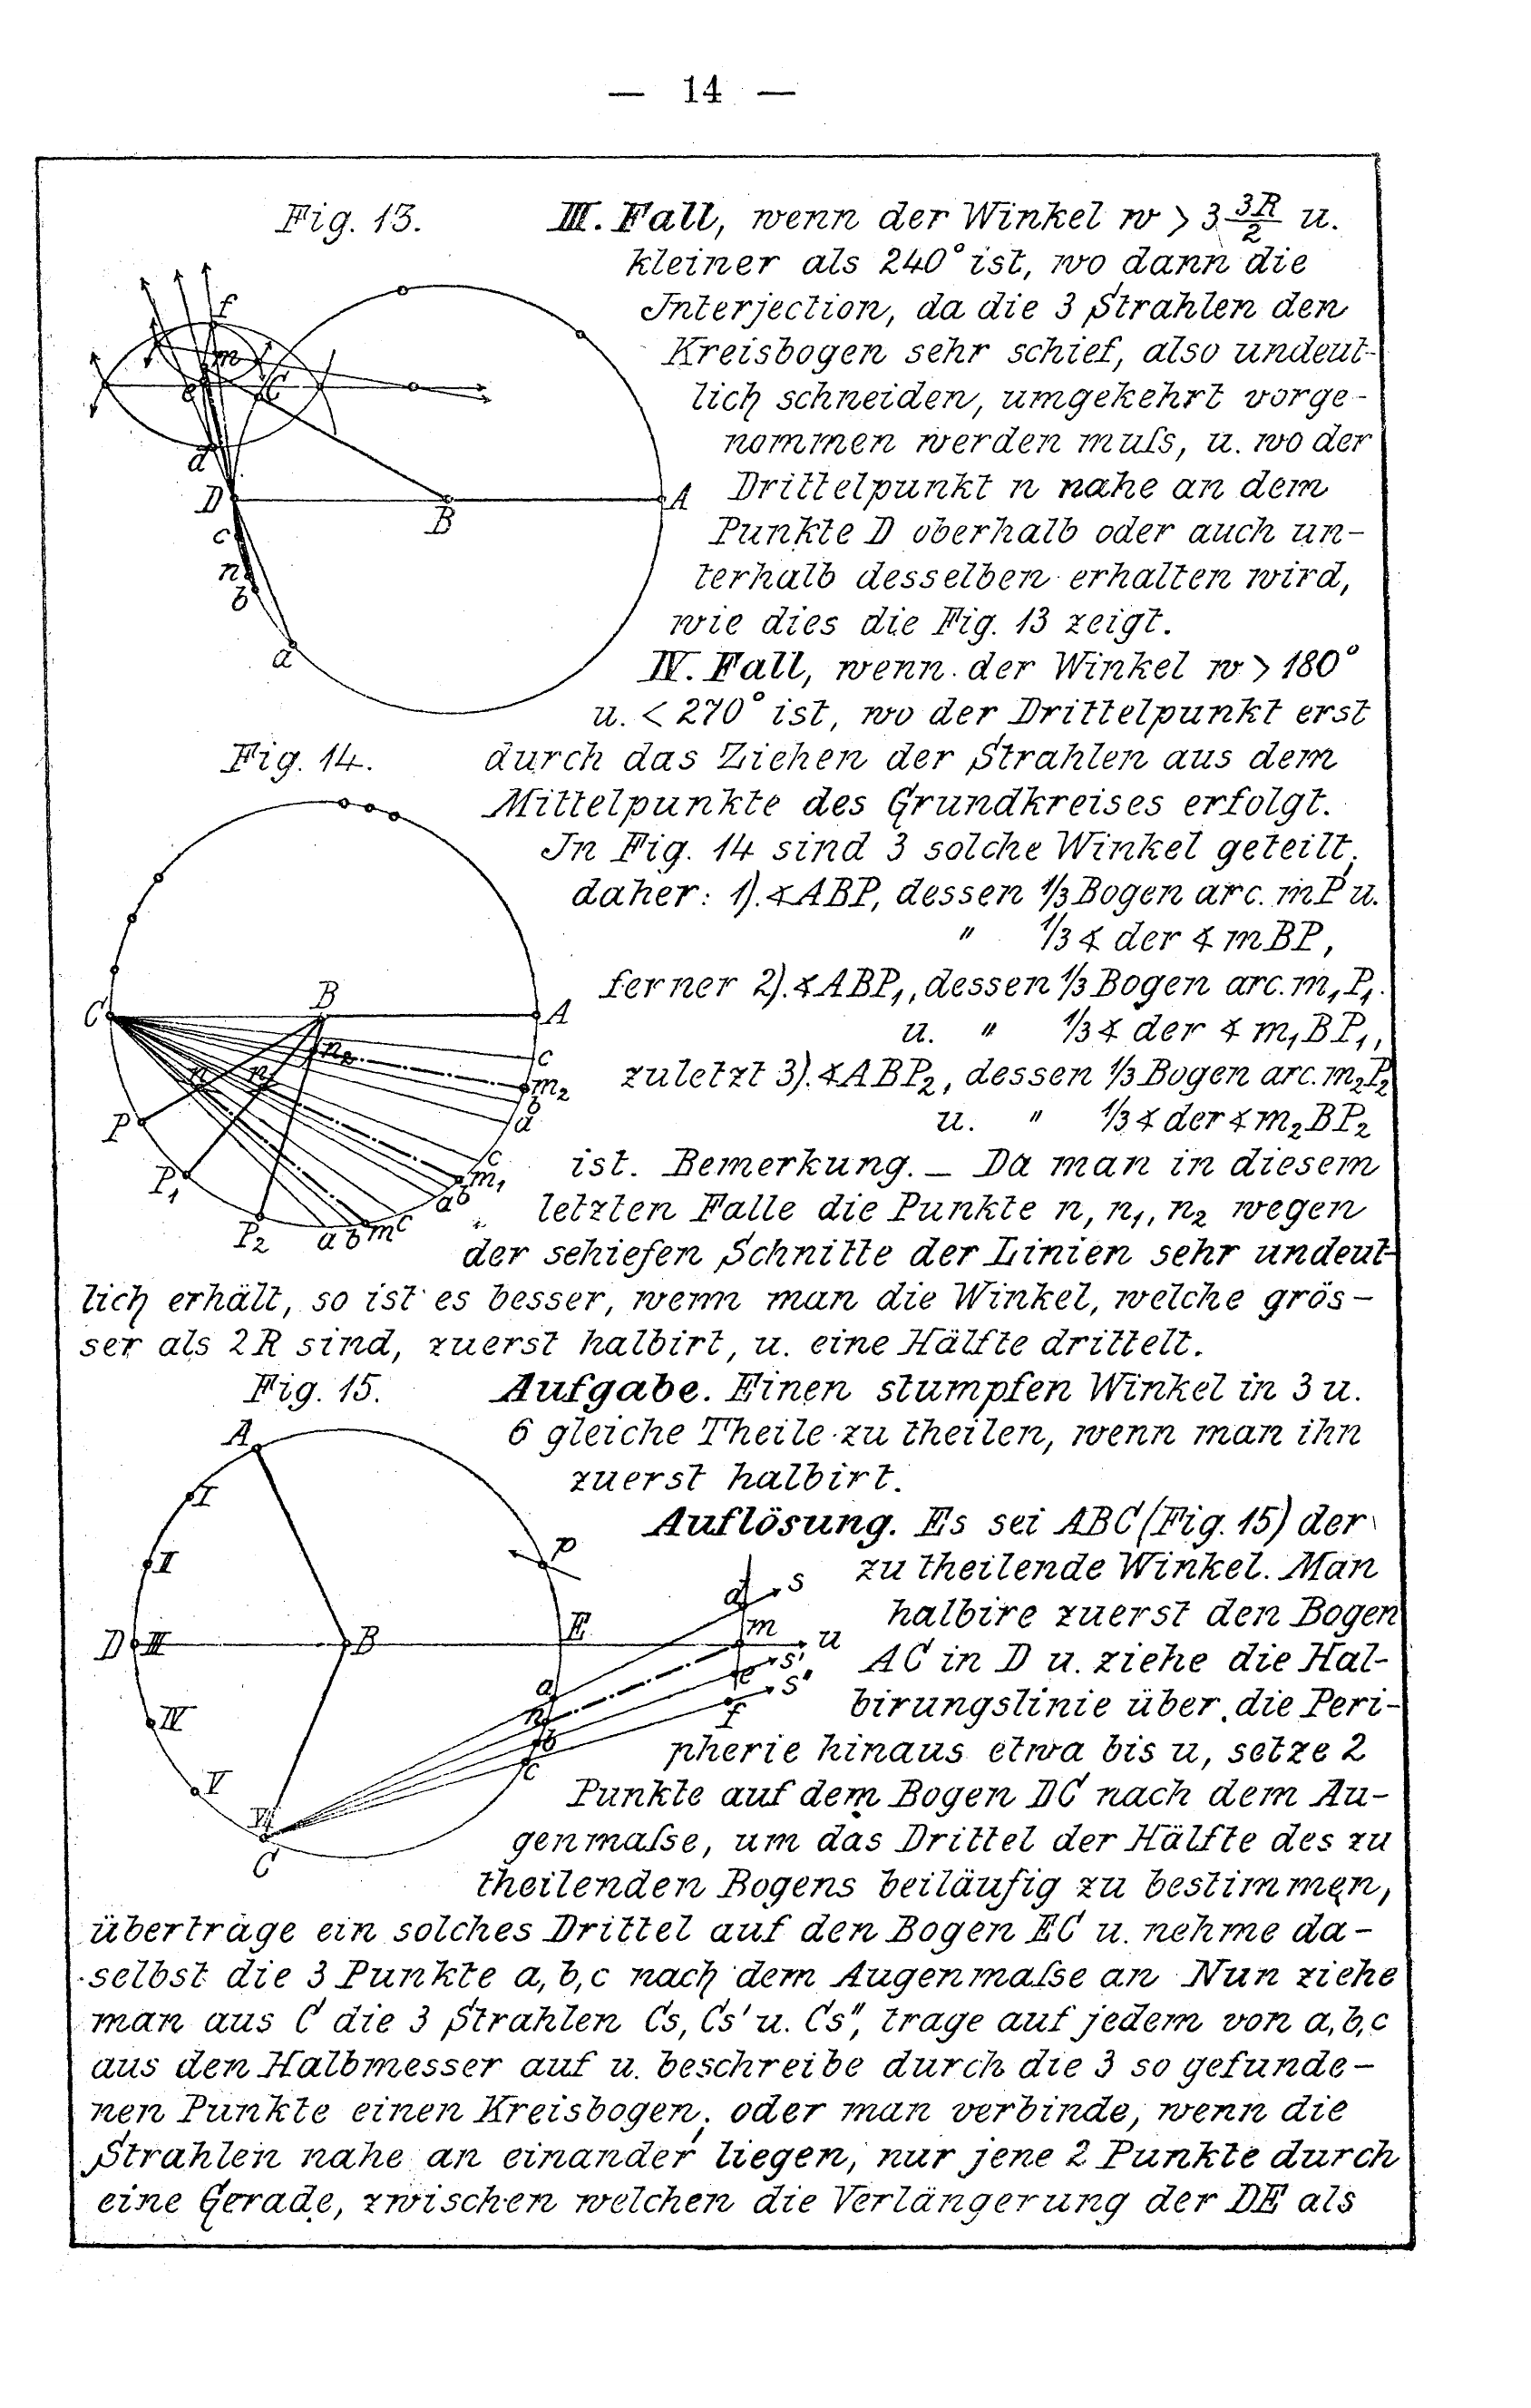 — 14 —
Fig. 13.
III. Fall, wenn der Winkel w > 3 3R/2 u.
kleiner als 240° ist, wo dann die
Interjection, da die 3 Strahlen den
Kreisbogen sehr schief, also undeut-
lich schneiden, umgekehrt vorge-
nommen werden muſs, u. wo der
Drittelpunkt n nahe an dem
Punkte D oberhalb oder auch un-
terhalb desselben erhalten wird,
wie dies die Fig. 13 zeigt.
f
m
e
C
d
D
B
A
c
n
b
a
IV. Fall, wenn der Winkel w > 180°
u. < 270° ist, wo der Drittelpunkt erst
durch das Ziehen der Strahlen aus dem
Mittelpunkte des Grundkreises erfolgt.
In Fig. 14 sind 3 solche Winkel geteilt,
daher: 1). ∢ABP, dessen 1/3 Bogen arc. mP u.
" 1/3 ∢ der ∢ mBP,
ferner 2). ∢ABP₁, dessen 1/3 Bogen arc. m₁P₁.
u. " 1/3 ∢ der ∢ m₁BP₁,
zuletzt 3). ∢ABP₂, dessen 1/3 Bogen arc. m₂P₂
u. " 1/3 ∢ der ∢ m₂BP₂
ist. Bemerkung. — Da man in diesem
letzten Falle die Punkte n, n₁, n₂ wegen
der sehiefen Schnitte der Linien sehr undeut-
lich erhält, so ist es besser, wenn man die Winkel, welche grös-
ser als 2R sind, zuerst halbirt, u. eine Hälfte drittelt.
Fig. 14.
C
B
A
n₂
c
m₂
b
a
n
n₁
P
c
P₁
m₁
a b
P₂
a b m c
Fig. 15.
Aufgabe. Einen stumpfen Winkel in 3 u.
6 gleiche Theile zu theilen, wenn man ihn
zuerst halbirt.
Auflösung. Es sei ABC (Fig. 15) der
zu theilende Winkel. Man
halbire zuerst den Bogen
AC in D u. ziehe die Hal-
birungslinie über die Peri-
pherie hinaus etwa bis u, setze 2
Punkte auf dem Bogen DC nach dem Au-
genmaſse, um das Drittel der Hälfte des zu
theilenden Bogens beiläufig zu bestimmen,
übertrage ein solches Drittel auf den Bogen EC u. nehme da-
selbst die 3 Punkte a, b, c nach dem Augenmaſse an Nun ziehe
man aus C die 3 Strahlen Cs, Cs' u. Cs", trage auf jedem von a, b, c
aus den Halbmesser auf u. beschreibe durch die 3 so gefunde-
nen Punkte einen Kreisbogen, oder man verbinde, wenn die
Strahlen nahe an einander liegen, nur jene 2 Punkte durch
eine Gerade, zwischen welchen die Verlängerung der DE als
A
I
P
II
d
s
D
III
B
E
m
u
s'
e
s"
a
n
f
IV
b
c
V
VI
C